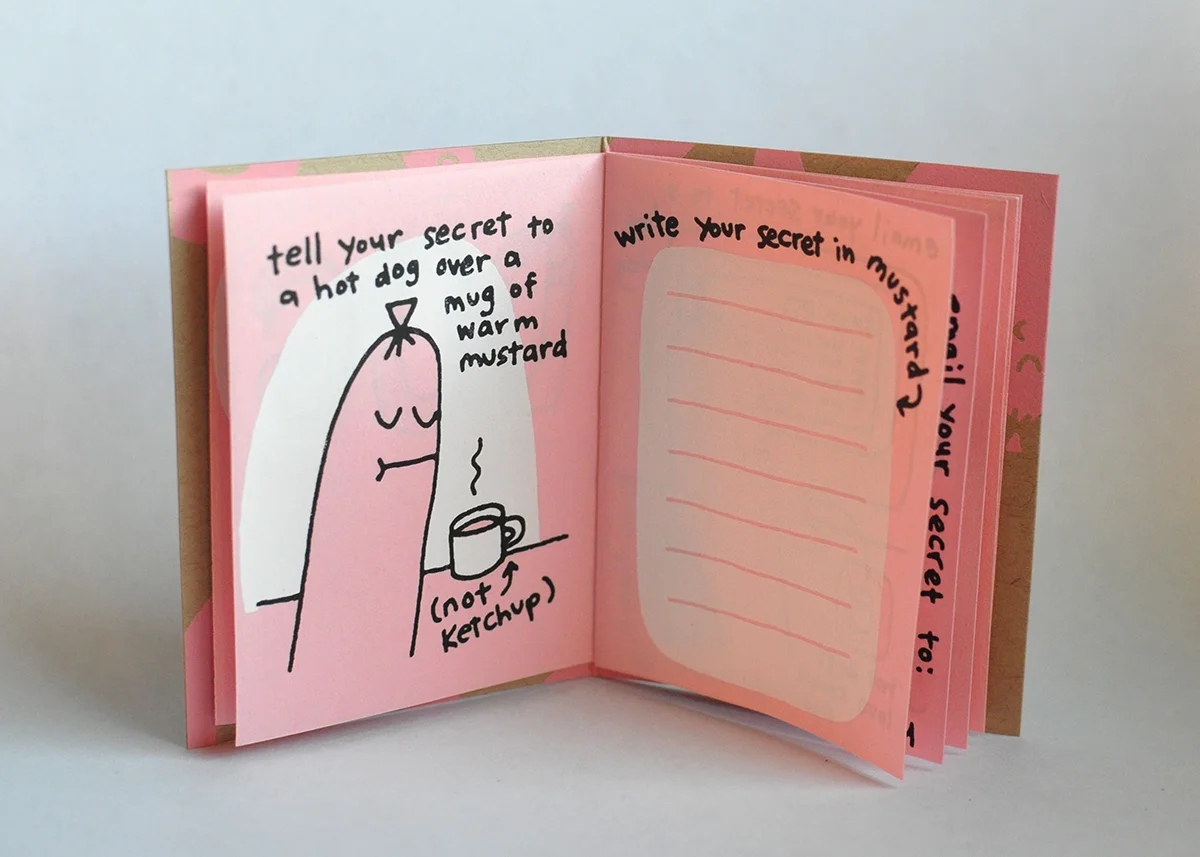 tell your secret to
a hot dog over a
mug of
warm
mustard
(not
ketchup)
write your secret in mustard
email your secret to: